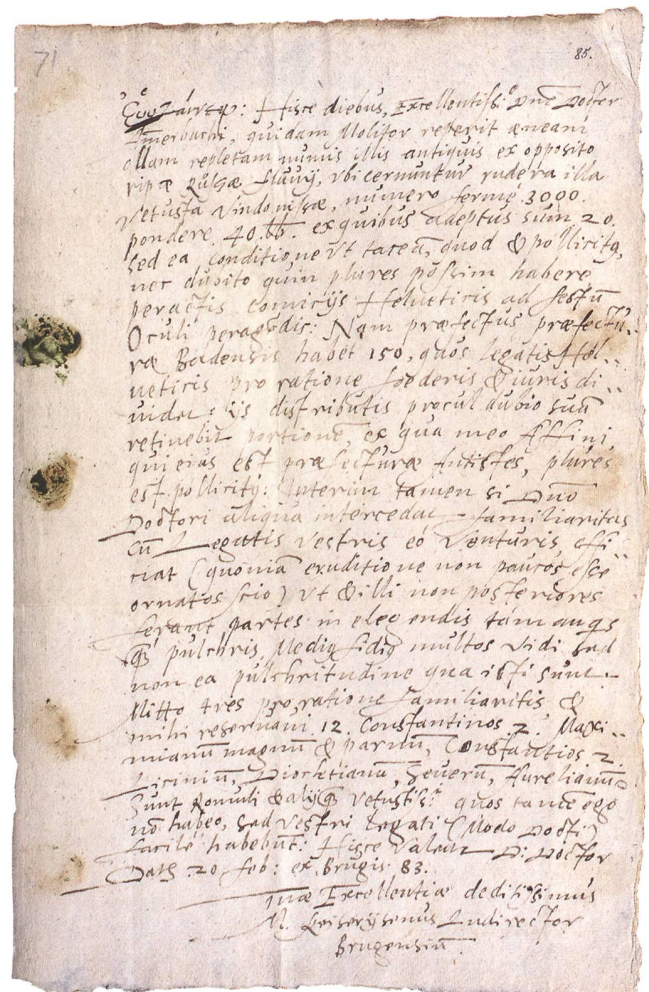 71
85.
Hisce diebus, Excellentiss: Dne Docter
Amerbachi, quidam Molitor reperit æneam
ollam repletam numis illis antiquis ex opposito
ripæ Rusæ fluvij, vbi cernuntur rudera illa
Vetusta Vindonissæ, numero fermè 3000.
pondere 40. ℔. ex quibus adeptus sum 20.
sed ea conditione vt taceã, quod & pollicitꝰ,
nec dubito quin plures possim habere
peractis comicijs Helueticis ad festũ
Oculi peragẽdis: Nam præfectus præfectu-
ræ Badensis habet 150, quos Legatis Hel-
ueticis pro ratione foederis & iuris di-
uidet: iis distributis procul dubio suã
retinebit portionẽ, ex qua meo Affini,
qui eius est præfecturæ Antistes, plures
est pollicitꝰ. Interim tamen si Dnõ
Doctori aliqua intercedat familiaritas
cũ Legatis Vestris eò Venturis, effi-
ciat (quoniã eruditione non paucos esse
ornatos scio) vt & illi non posteriores
ferant partes in eligendis tam
pulchris, multos vidi sed
non ea pulchritudine qua isti sunt.
Mitto tres pro ratione familiaritis &
mihi reseruaui 12. Constantinos 2. Maxi-
mianũ magnũ & paruũ, Constantios 2.
Licinium, Diocletianũ, Seuerũ, Aurelianũ
Sunt Romuli & alijqꝫ Vetustiss: quos tamẽ ego
nõ habeo, sed Vestri Legati (Modo Docti)
facile habebũt. Hisce Valeat D: Doctor
Dat: 20 feb: ex Brugis 83.
Tuæ Excellentiæ deditissimus
Ludirector
Brugensiũ